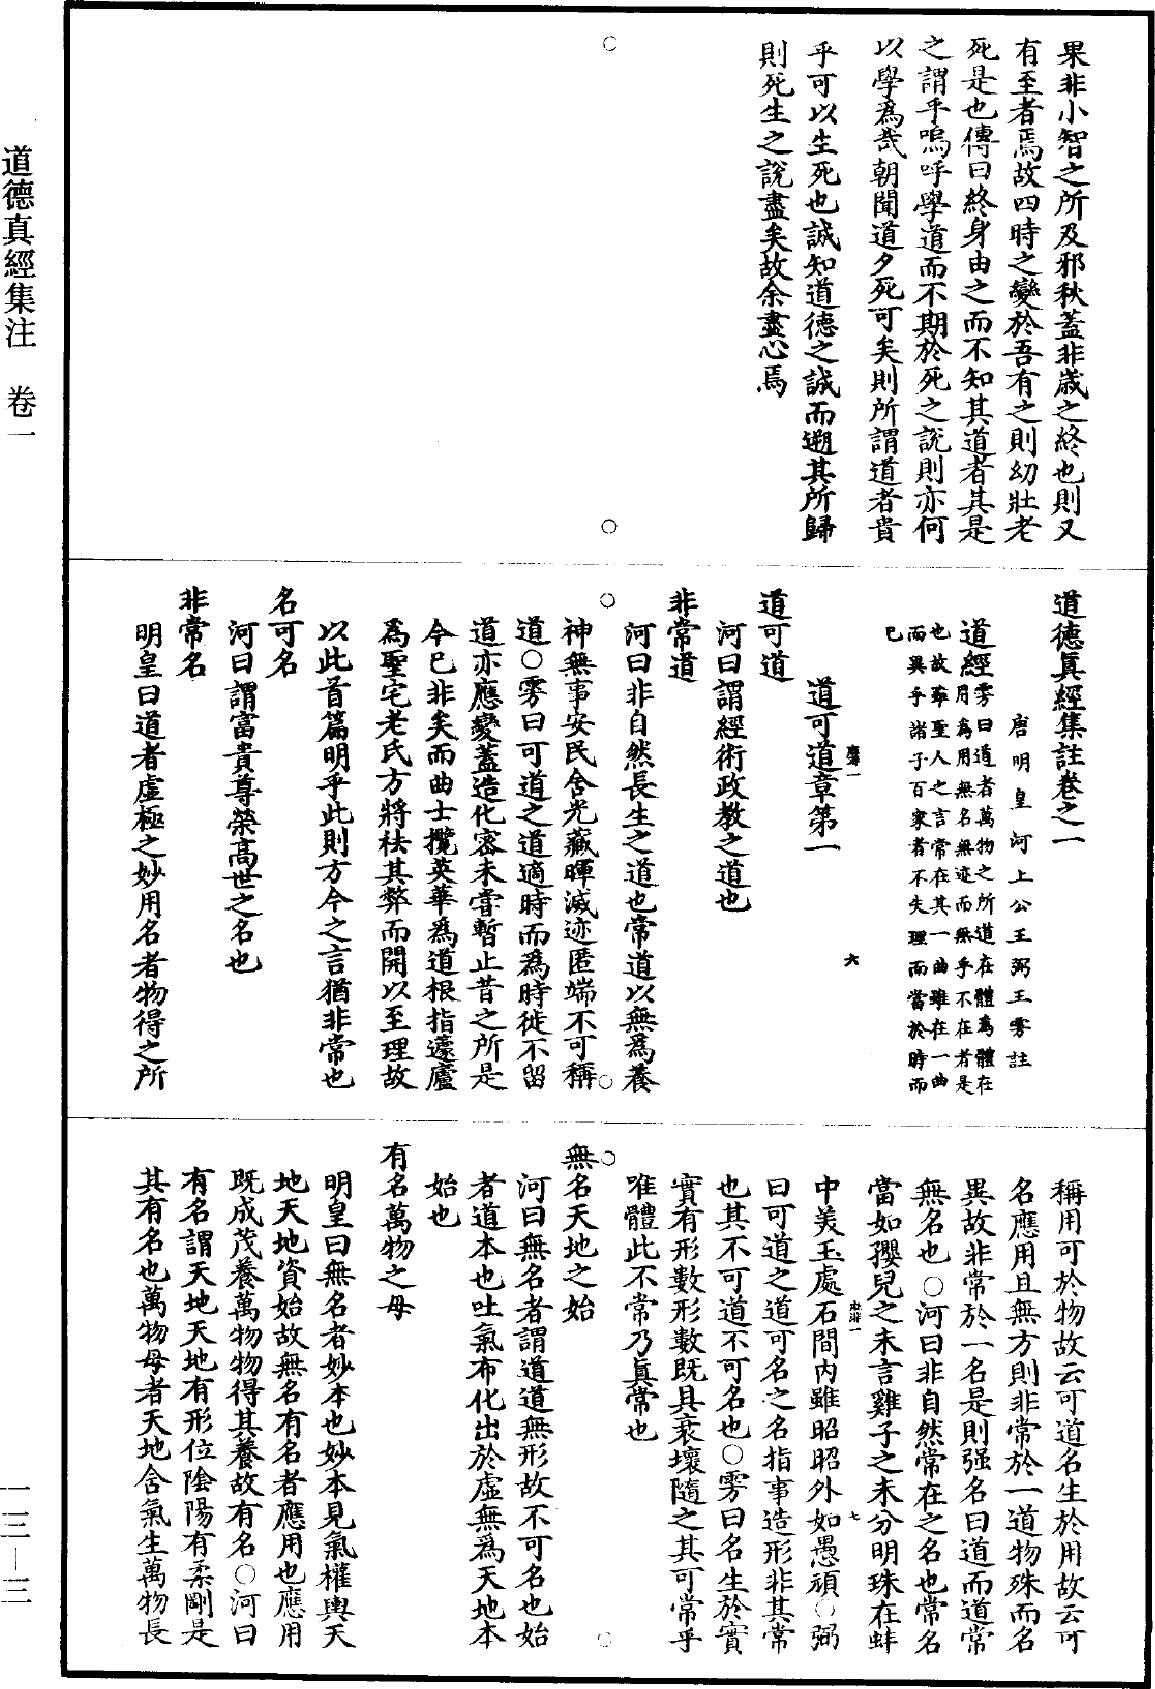 果非小智之所及邪秋蓋非歲之終也則又
有至者焉故四時之變於吾有之則幼壯老
死是也傳曰終身由之而不知其道者其是
之謂乎嗚呼學道而不期於死之說則亦何
以學為哉朝聞道夕死可矣則所謂道者貴
乎可以生死也誠知道德之誠而遡其所歸
則死生之說盡矣故余盡心焉
道德眞經集註卷之一
唐明皇河上公王弼王雱註
道經
雱曰道者萬物之所道在體為體在
用為用無名無迹而無乎不在者是
也故雖聖人之言常在其一曲雖在一曲
而異乎諸子百家者不失理而當於時而
已
道可道章第一
道可道
河曰謂經術政教之道也
非常道
河曰非自然長生之道也常道以無為養
神無事安民含光藏暉滅迹匿端不可稱
道○雱曰可道之道適時而為時徙不留
道亦應變蓋造化密未甞暫止昔之所是
今已非矣而曲士攬英華為道根指蘧廬
為聖宅老氏方將袪其弊而開以至理故
以此首篇明乎此則方今之言猶非常也
名可名
河曰謂富貴尊榮高世之名也
非常名
明皇曰道者虛極之妙用名者物得之所
稱用可於物故云可道名生於用故云可
名應用且無方則非常於一道物殊而名
異故非常於一名是則强名曰道而道常
無名也○河曰非自然常在之名也常名
當如孾兒之未言雞子之未分明珠在蚌
中美玉處石間內雖昭昭外如愚頑○弼
曰可道之道可名之名指事造形非其常
也其不可道不可名也○雱曰名生於實
實有形數形數既具衰壞隨之其可常乎
唯體此不常乃眞常也
無名天地之始
河曰無名者謂道道無形故不可名也始
者道本也吐氣布化出於虛無為天地本
始也
有名萬物之母
明皇曰無名者妙本也妙本見氣權輿天
地天地資始故無名有名者應用也應用
既成茂養萬物物得其養故有名○河曰
有名謂天地天地有形位陰陽有柔剛是
其有名也萬物母者天地含氣生萬物長
道德真經集注 卷一
一三—三
六
七